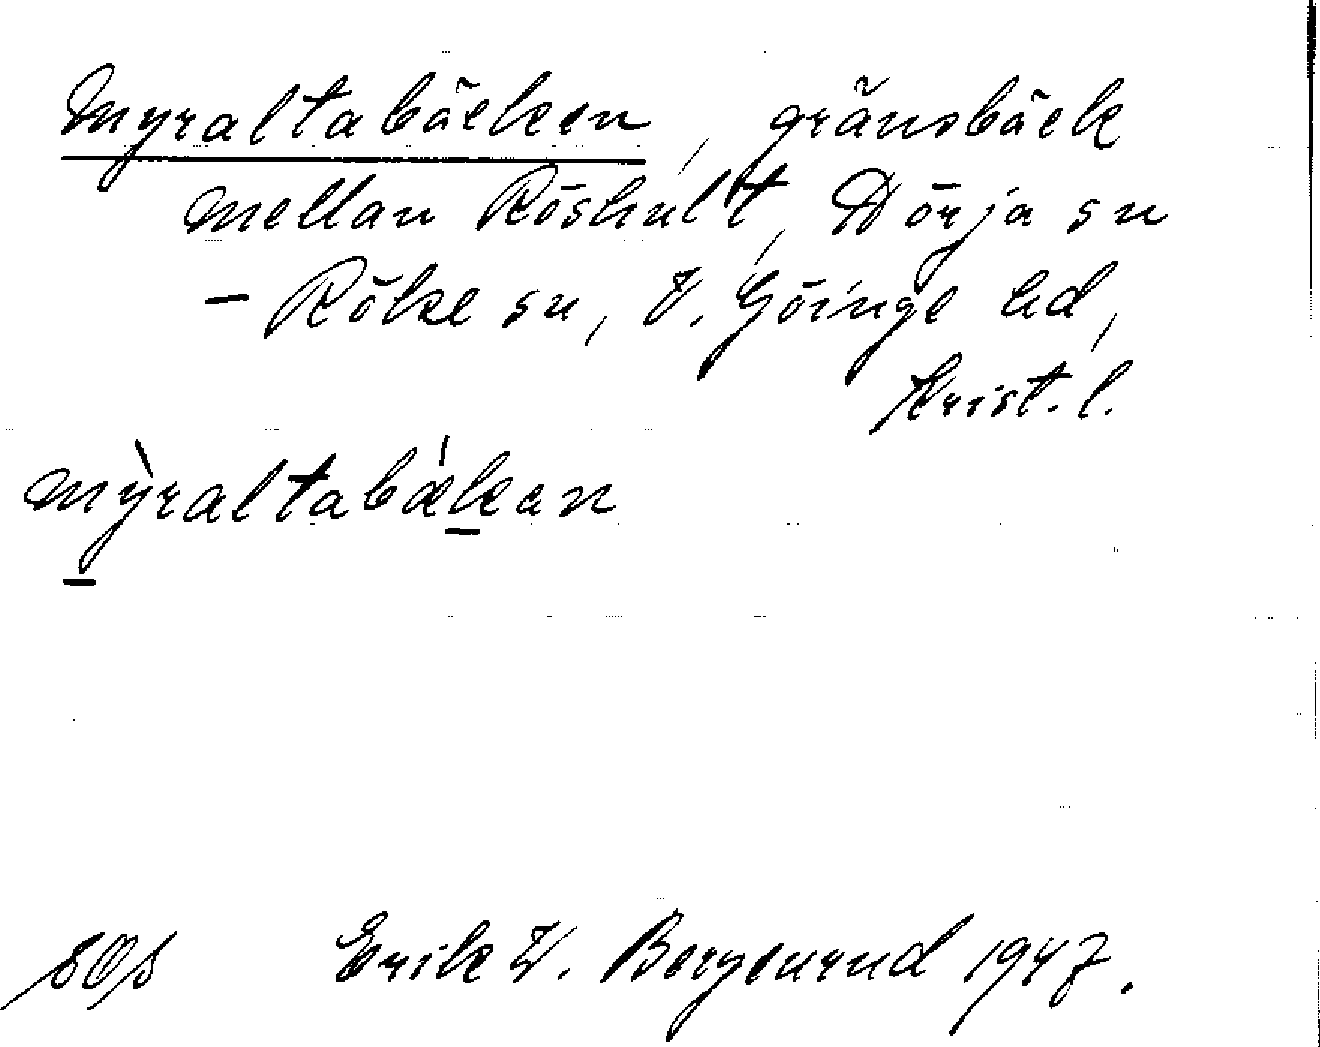 Myraltabäcken, gränsbäck
mellan Röshult, Dörja sn
— Röke sn, V. Göinge hd,
Krist. l.
mỳraltabǽkan
Erik W. Bergenrud 1947.